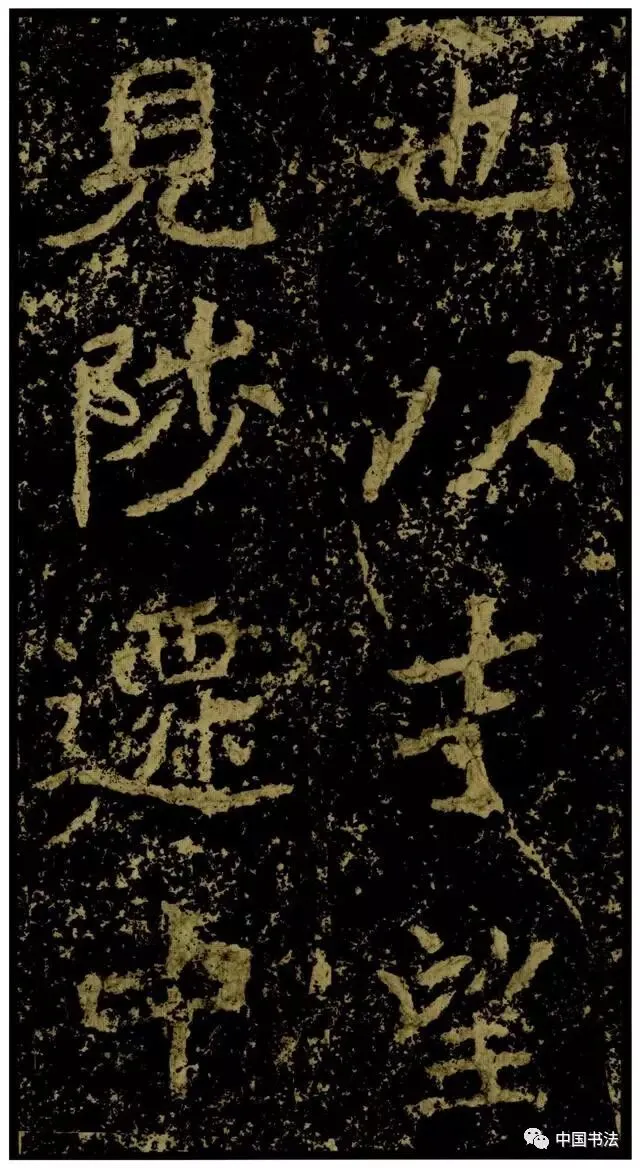 也以望
見陟遷中
中国书法